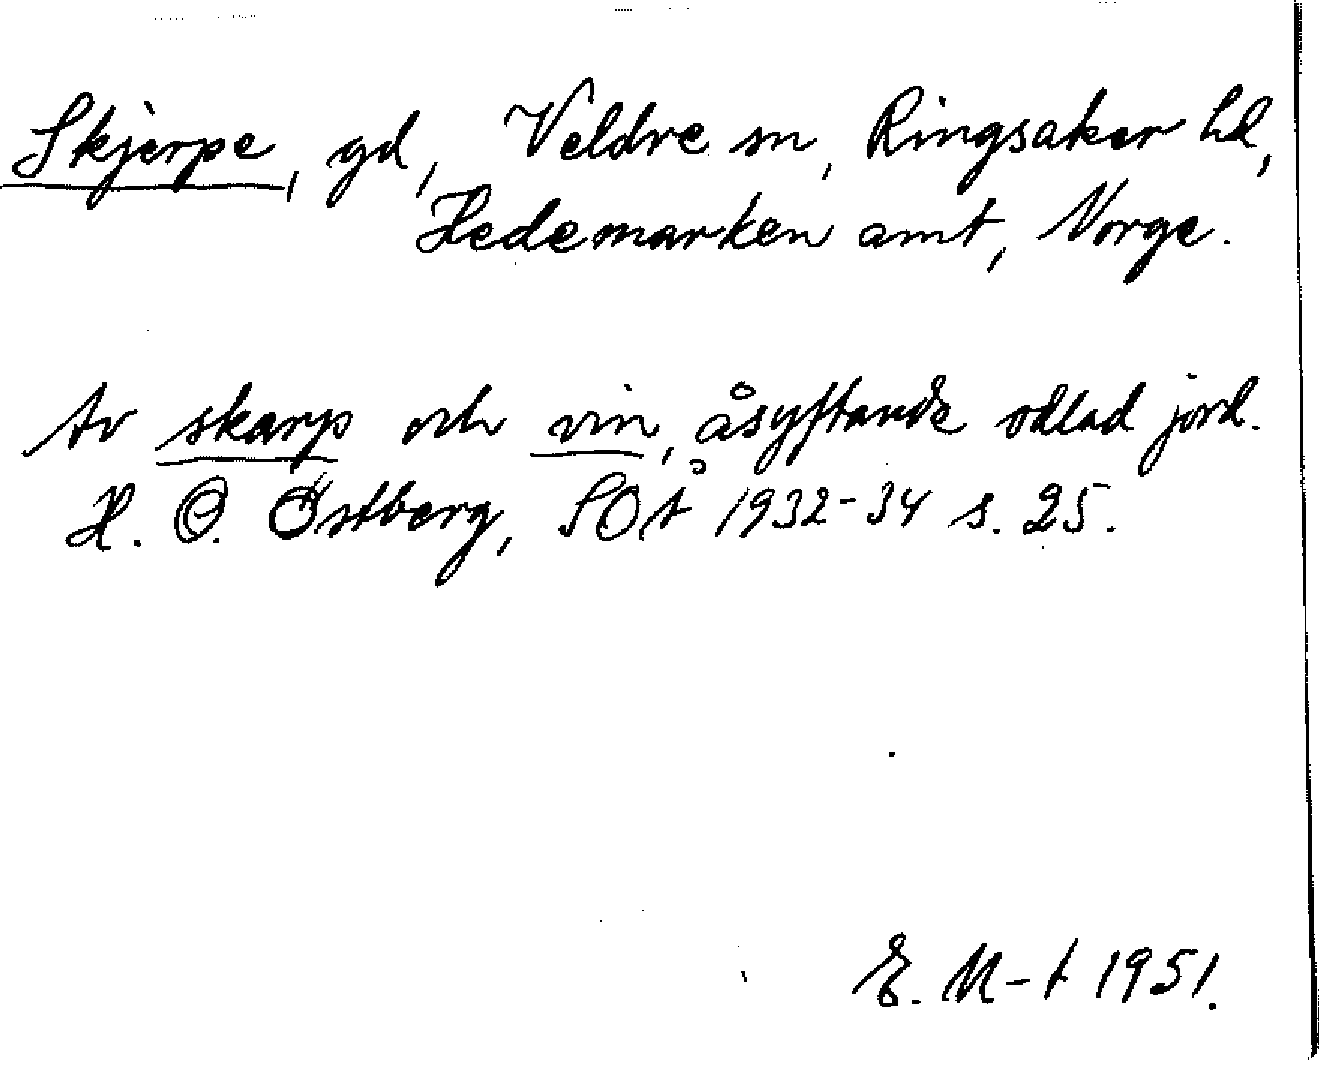 Skjerpe, gd, Veldre sn, Ringsaker hd,
Hedemarken amt, Norge.
Av skarp och vin, åsyftande odlad jord.
H. O. Östberg, SOÅ 1932-34 s. 25.
E. M-t 1951.